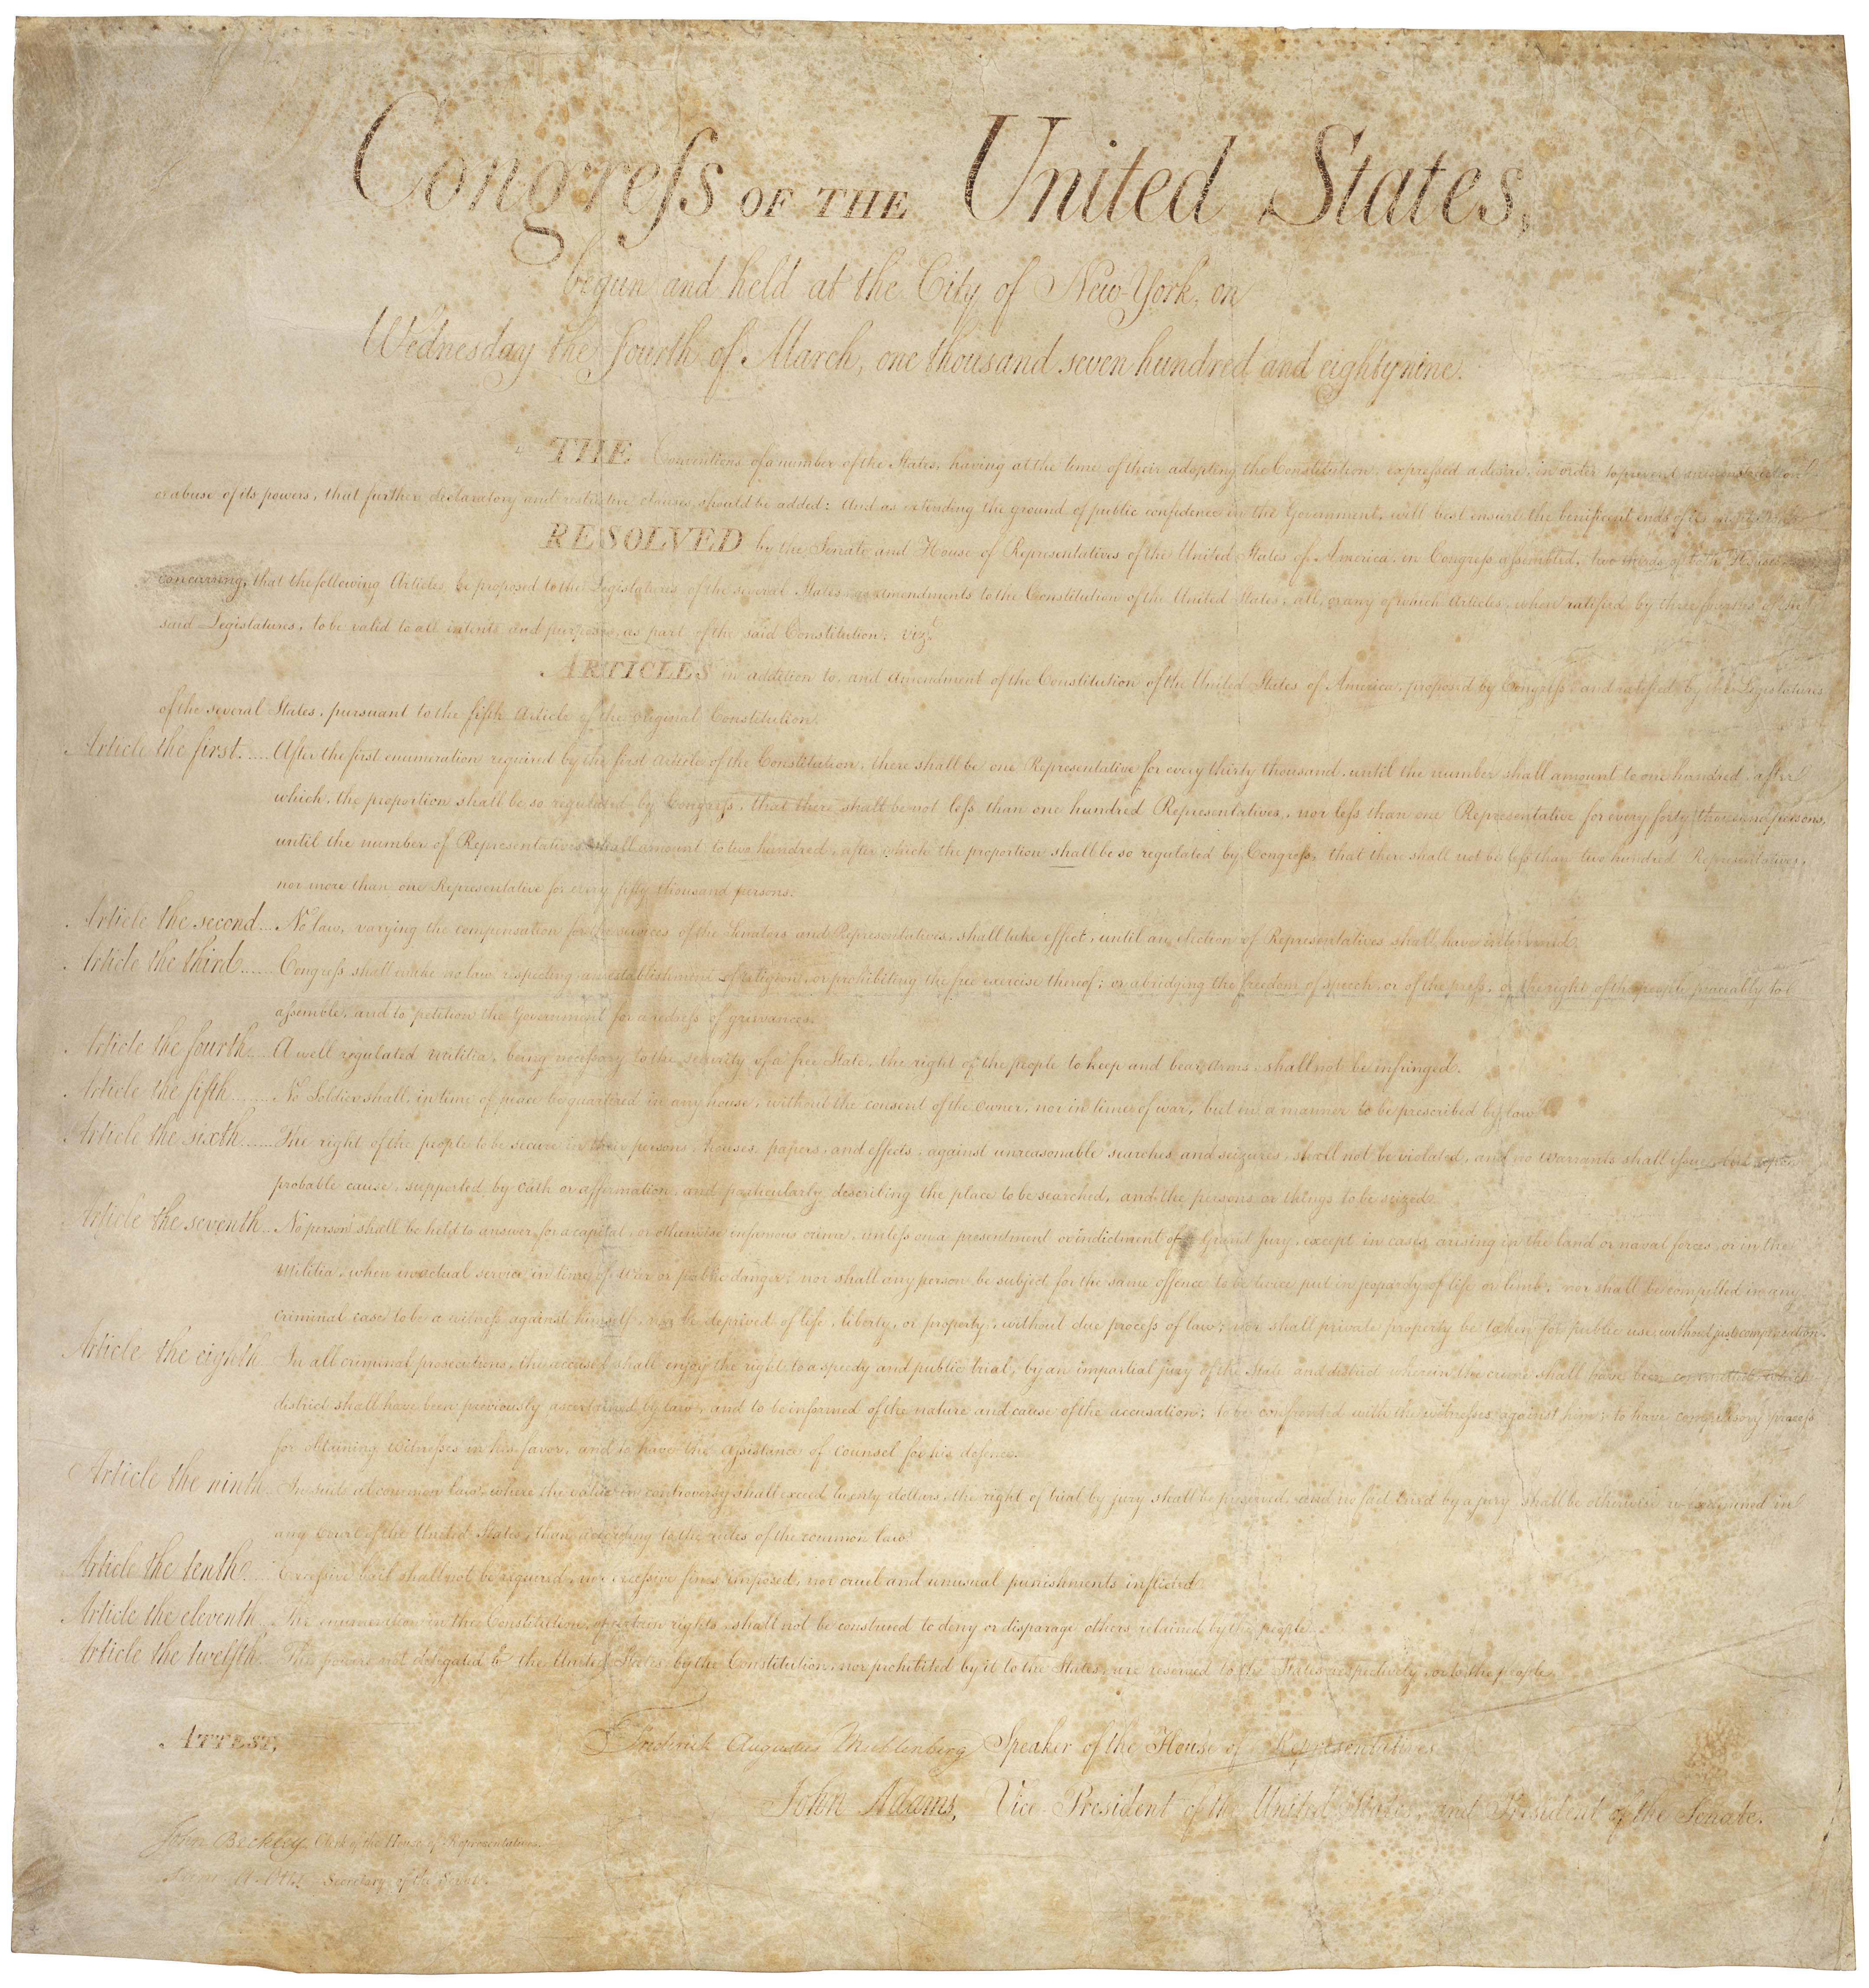 Congreſs OF THE United States,
begun and held at the City of New-York, on
Wednesday the fourth of March, one thousand seven hundred and eighty nine.
THE Conventions of a number of the States, having at the time of their adopting the Constitution, expreſsed a desire, in order to prevent misconstruction
or abuse of its powers, that further declaratory and restrictive clauses should be added: And as extending the ground of public confidence in the Government, will best ensure the beneficent ends of its institution
RESOLVED by the Senate and House of Representatives of the United States of America, in Congreſs aſsembled, two thirds of both Houses
concurring, that the following Articles be proposed to the Legislatures of the several States, as amendments to the Constitution of the United States, all, or any of which Articles, when ratified by three fourths of the
said Legislatures, to be valid to all intents and purposes, as part of the said Constitution; vizt.
ARTICLES in addition to, and amendment of the Constitution of the United States of America, proposed by Congreſs, and ratified by the Legislatures
of the several States, pursuant to the fifth Article of the original Constitution.
Article the first..... After the first enumeration required by the first Article of the Constitution, there shall be one Representative for every thirty thousand, until the number shall amount to one hundred, after
which, the proportion shall be so regulated by Congreſs, that there shall be not leſs than one hundred Representatives, nor leſs than one Representative for every forty thousand persons,
until the number of Representatives shall amount to two hundred, after which the proportion shall be so regulated by Congreſs, that there shall not be leſs than two hundred Representatives,
nor more than one Representative for every fifty thousand persons.
Article the second... No law, varying the compensation for the services of the Senators and Representatives, shall take effect, until an election of Representatives shall have intervened.
Article the third...... Congreſs shall make no law respecting an establishment of religion, or prohibiting the free exercise thereof; or abridging the freedom of speech, or of the preſs; or the right of the people peaceably to
aſsemble, and to petition the Government for a redreſs of grievances.
Article the fourth.... A well regulated Militia, being neceſsary to the security of a free State, the right of the people to keep and bear Arms, shall not be infringed.
Article the fifth....... No Soldier shall, in time of peace be quartered in any house, without the consent of the Owner, nor in time of war, but in a manner to be prescribed by law.
Article the sixth...... The right of the people to be secure in their persons, houses, papers, and effects, against unreasonable searches and seizures, shall not be violated, and no Warrants shall iſsue, but upon
probable cause, supported by Oath or affirmation, and particularly describing the place to be searched, and the persons or things to be seized.
Article the seventh.. No person shall be held to answer for a capital, or otherwise infamous crime, unleſs on a presentment or indictment of a Grand Jury, except in cases arising in the land or naval forces, or in the
Militia, when in actual service in time of War or public danger; nor shall any person be subject for the same offence to be twice put in jeopardy of life or limb; nor shall be compelled in any
criminal case to be a witneſs against himself, nor be deprived of life, liberty, or property, without due proceſs of law; nor shall private property be taken for public use, without just compensation.
Article the eighth.. In all criminal prosecutions, the accused shall enjoy the right to a speedy and public trial, by an impartial jury of the State and district wherein the crime shall have been committed, which
district shall have been previously ascertained by law, and to be informed of the nature and cause of the accusation; to be confronted with the witneſses against him; to have compulsory proceſs
for obtaining witneſses in his favor, and to have the aſsistance of counsel for his defence.
Article the ninth.. In suits at common law, where the value in controversy shall exceed twenty dollars, the right of trial by jury shall be preserved, and no fact tried by a jury shall be otherwise re-examined in
any Court of the United States, than according to the rules of the common law.
Article the tenth... Exceſsive bail shall not be required, nor exceſsive fines imposed, nor cruel and unusual punishments inflicted.
Article the eleventh. The enumeration in the Constitution, of certain rights, shall not be construed to deny or disparage others retained by the people.
Article the twelfth. The powers not delegated to the United States by the Constitution, nor prohibited by it to the States, are reserved to the States respectively, or to the people.
ATTEST,
Frederick Augustus Muhlenberg Speaker of the House of Representatives
John Adams, Vice-President of the United States, and President of the Senate.
John Beckley, Clerk of the House of Representatives.
Sam. A. Otis Secretary of the Senate.